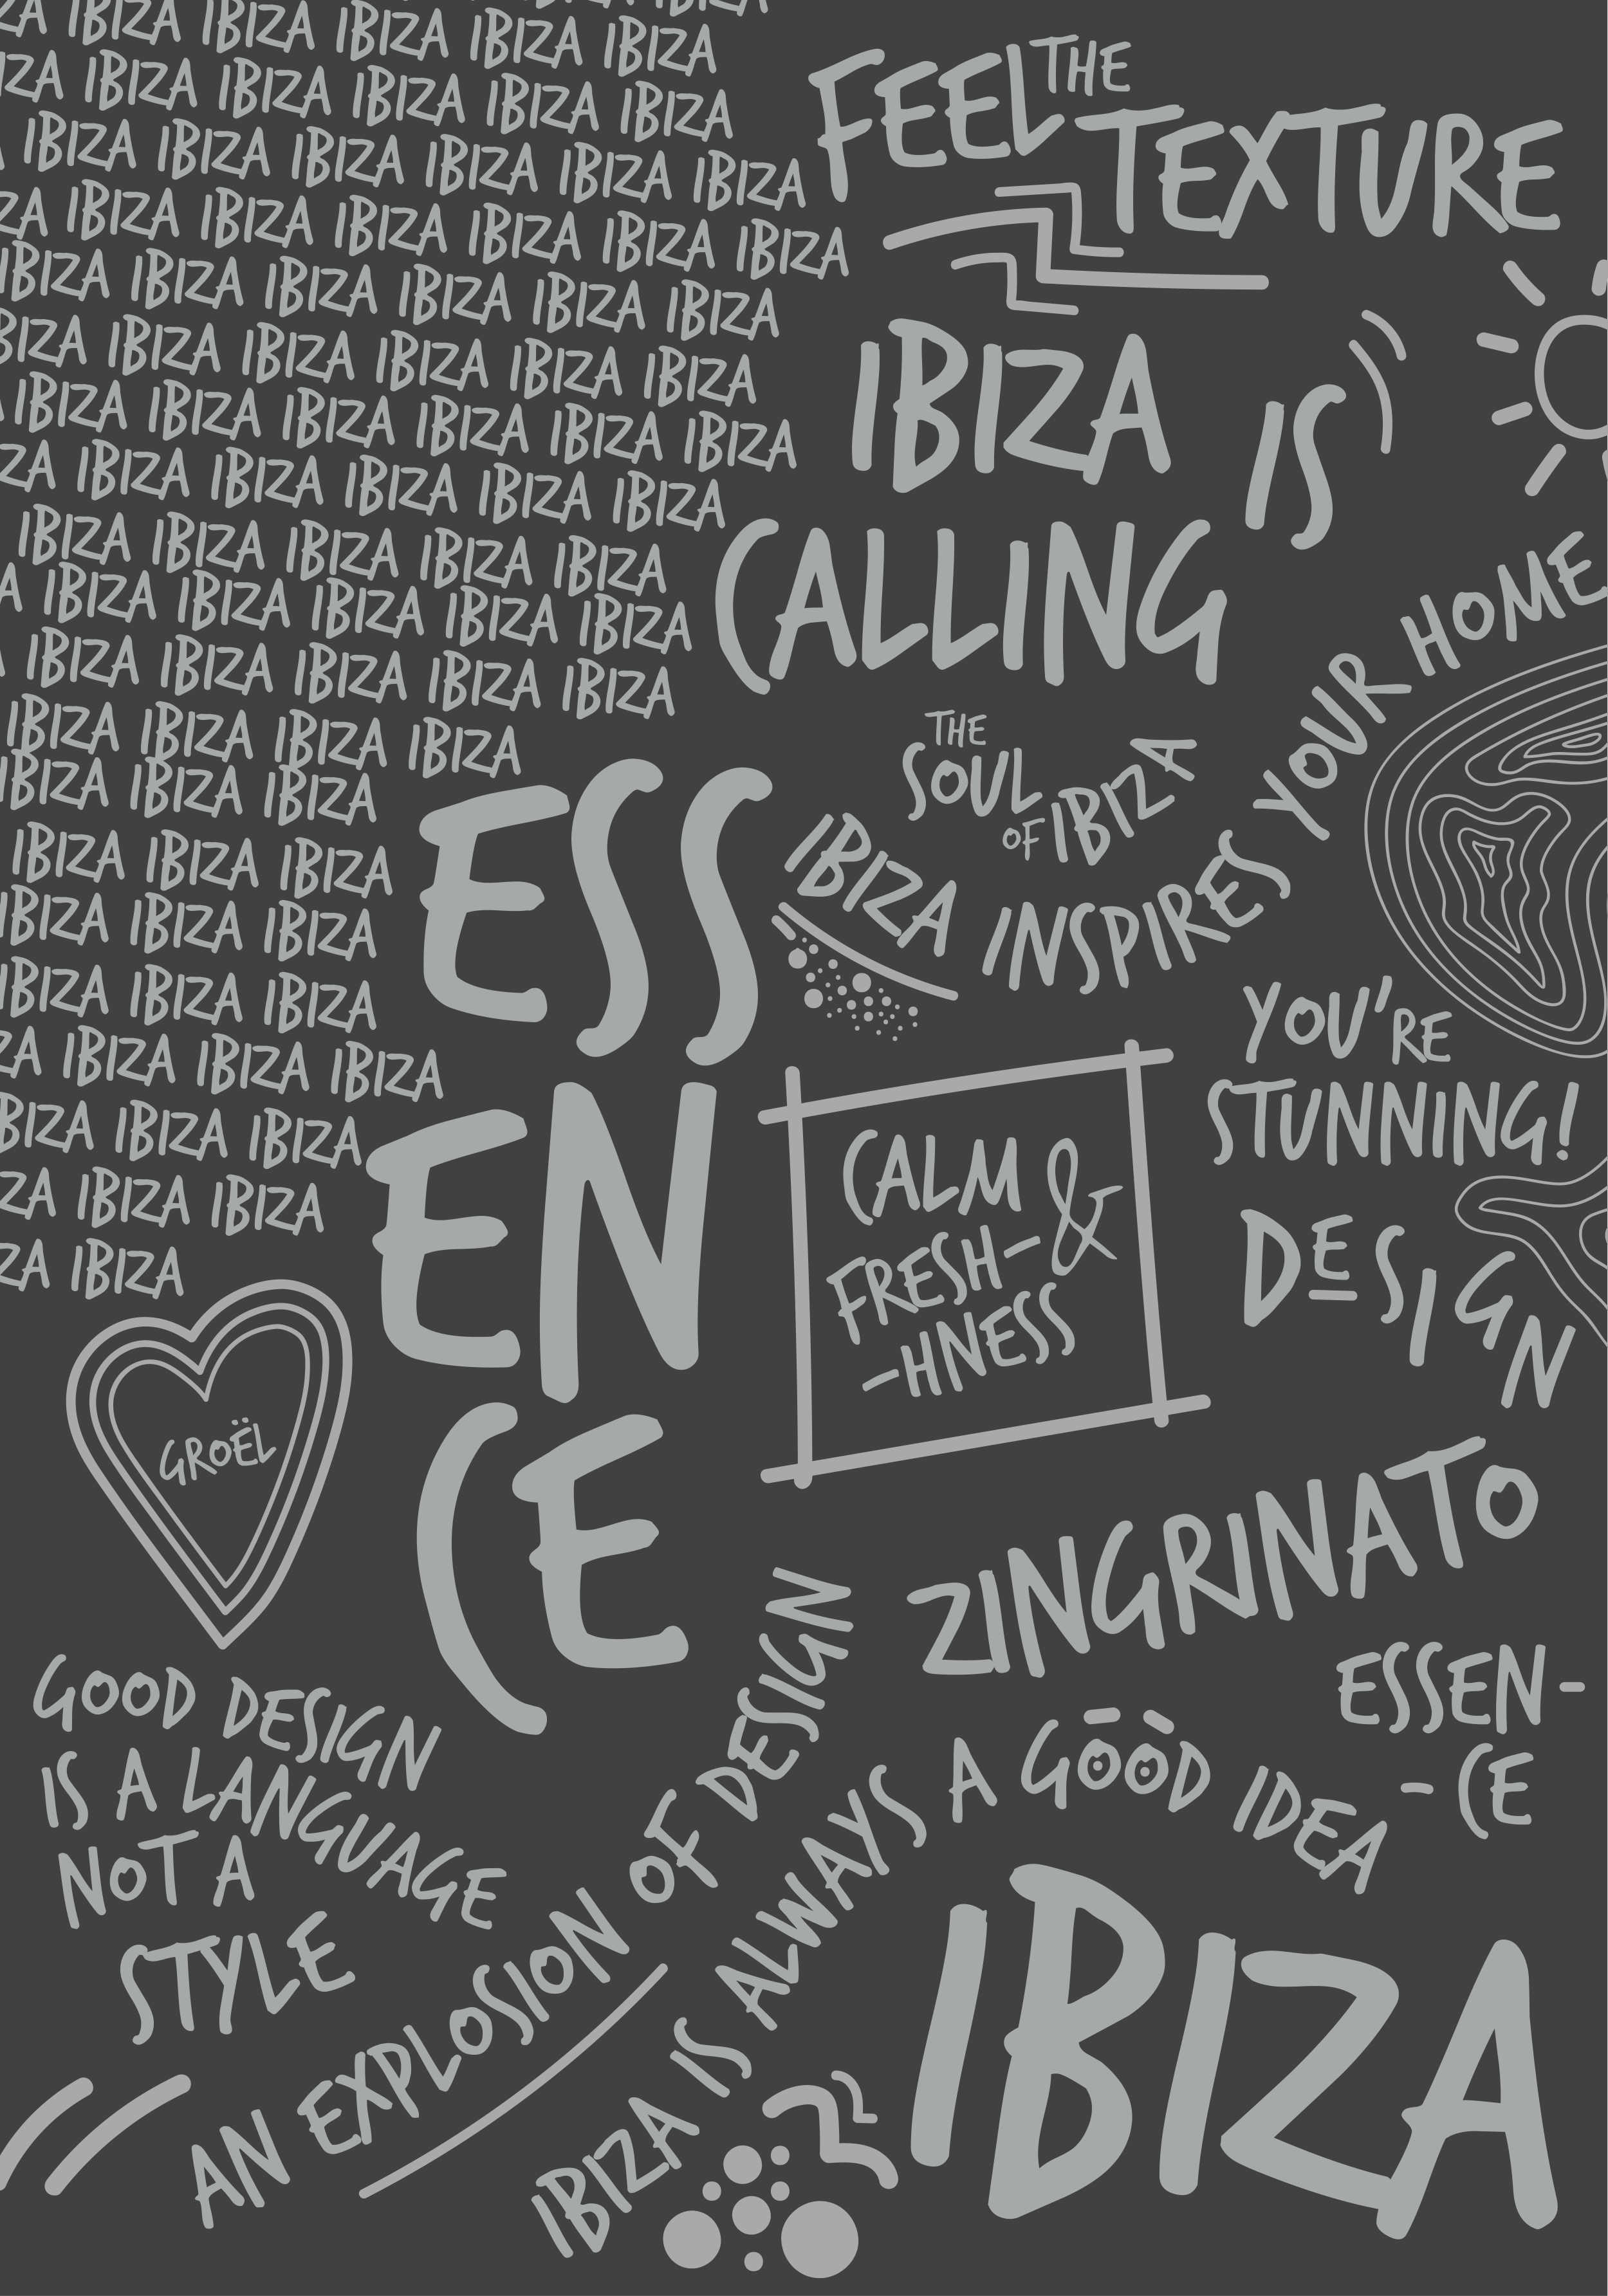 IBIZA IBIZA IBIZA IBIZA IBIZA
IZA IBIZA IBIZA IBIZA IBIZA IBIZA
IBIZA IBIZA IBIZA IBIZA IBIZA IBIZA
ZA IBIZA IBIZA IBIZA IBIZA IBIZA IBIZA
IBIZA IBIZA IBIZA IBIZA IBIZA IBIZA
BIZA IBIZA IBIZA IBIZA IBIZA IBIZA
IBIZA IBIZA IBIZA IBIZA IBIZA IBIZA
ZA IBIZA IBIZA IBIZA IBIZA IBIZA
IBIZA IBIZA IBIZA IBIZA IBIZA
A IBIZA IBIZA IBIZA IBIZA IBIZA
IBIZA IBIZA IBIZA IBIZA IBIZA
IBIZA IBIZA IBIZA IBIZA
IBIZA IBIZA IBIZA
IBIZA IBIZA IBIZA
IBIZA IBIZA IBIZA
IBIZA IBIZA IBIZA
ZA IBIZA IBIZA IBIZA
BIZA IBIZA IBIZA
ZA IBIZA IBIZA
ZA IBIZA
FEEL THE
TEXTURE
IBIZA IS
CALLING
THE
SOUL
OF IBIZA
IBIZA INSPIRES YOUR HOME
ESS
EN
CE
YOU'RE
STUNNING!
DESIGN
CALM &
FRESH-
-HNESS
GROËL
ZINGRNATO
ESSEN-
-CE
GOOD DESIGN
IS A LANGUAGE
NOT A
STYLE
AN EXPLOSION OF DESIGN
IBIZA IS ALWAYS A GOOD IDEA
IBIZA